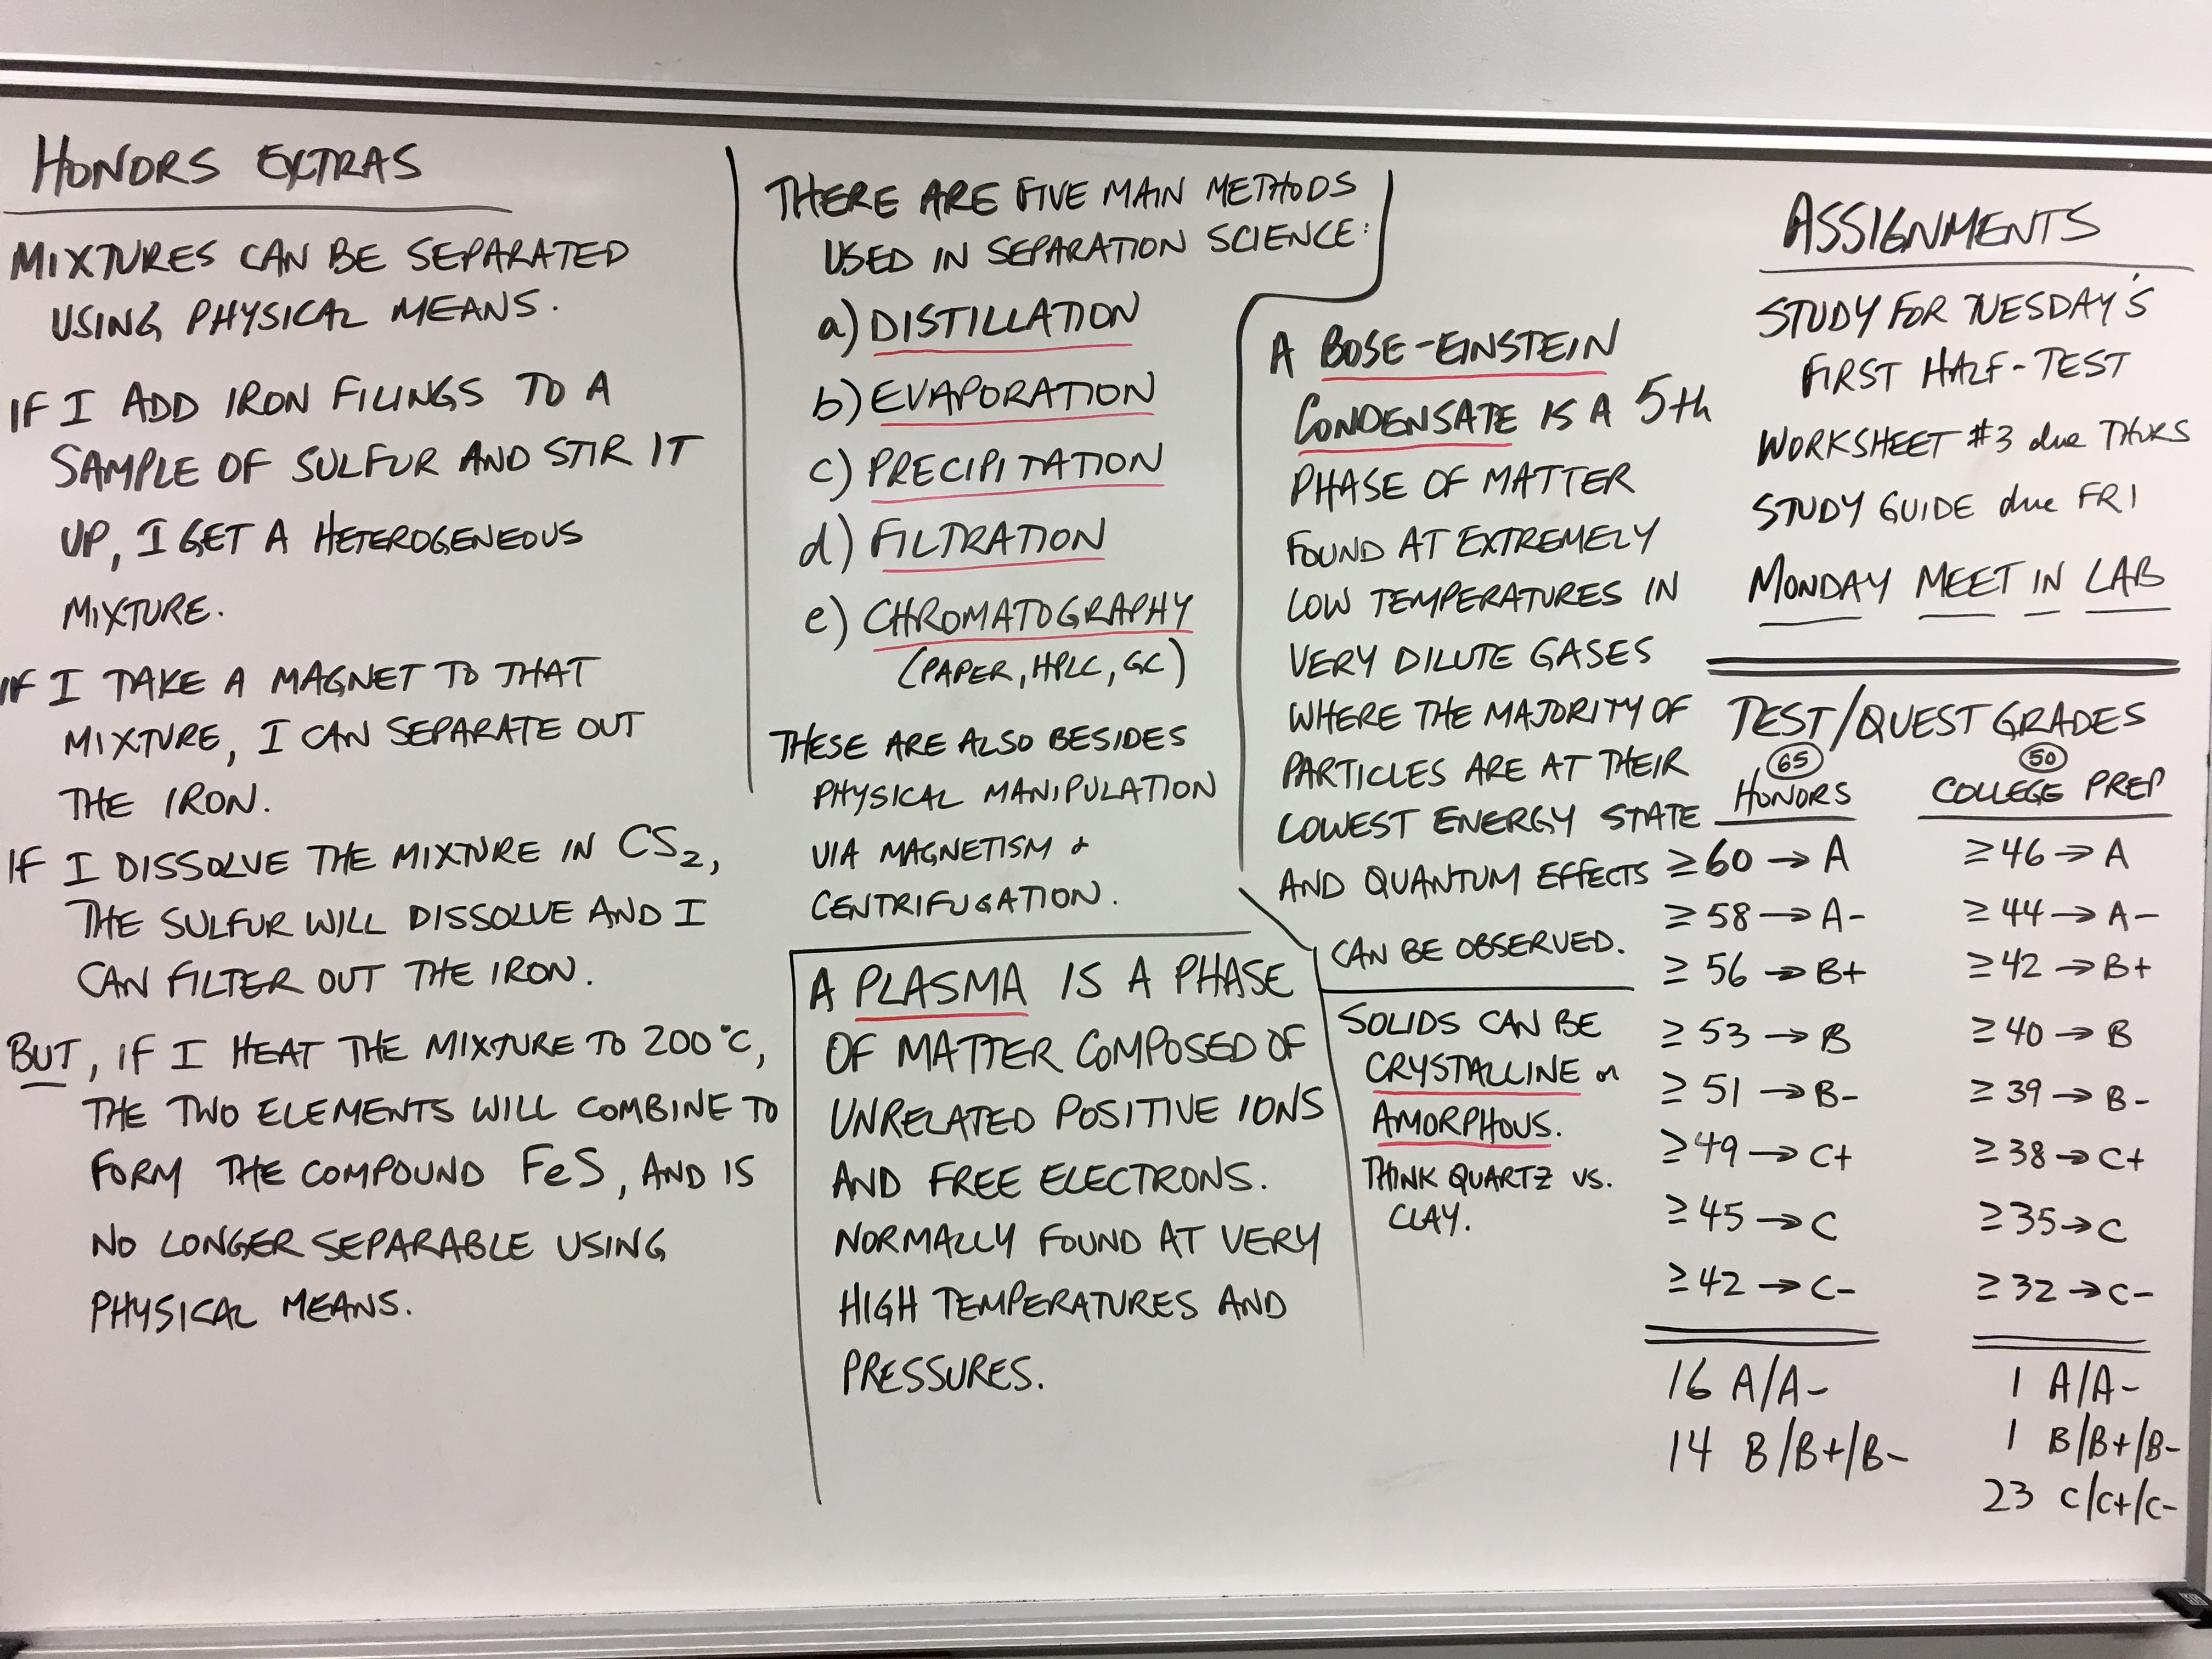 HONORS EXTRAS
MIXTURES CAN BE SEPARATED
USING PHYSICAL MEANS.
IF I ADD IRON FILINGS TO A
SAMPLE OF SULFUR AND STIR IT
UP, I GET A HETEROGENEOUS
MIXTURE.
IF I TAKE A MAGNET TO THAT
MIXTURE, I CAN SEPARATE OUT
THE IRON.
IF I DISSOLVE THE MIXTURE IN CS₂,
THE SULFUR WILL DISSOLVE AND I
CAN FILTER OUT THE IRON.
BUT, IF I HEAT THE MIXTURE TO 200°C,
THE TWO ELEMENTS WILL COMBINE TO
FORM THE COMPOUND FeS, AND IS
NO LONGER SEPARABLE USING
PHYSICAL MEANS.
THERE ARE FIVE MAIN METHODS
USED IN SEPARATION SCIENCE:
a) DISTILLATION
b) EVAPORATION
c) PRECIPITATION
d) FILTRATION
e) CHROMATOGRAPHY
(PAPER, HPLC, GC)
THESE ARE ALSO BESIDES
PHYSICAL MANIPULATION
VIA MAGNETISM &
CENTRIFUGATION.
A PLASMA IS A PHASE
OF MATTER COMPOSED OF
UNRELATED POSITIVE IONS
AND FREE ELECTRONS.
NORMALLY FOUND AT VERY
HIGH TEMPERATURES AND
PRESSURES.
A BOSE-EINSTEIN
CONDENSATE IS A 5th
PHASE OF MATTER
FOUND AT EXTREMELY
LOW TEMPERATURES IN
VERY DILUTE GASES
WHERE THE MAJORITY OF
PARTICLES ARE AT THEIR
LOWEST ENERGY STATE
AND QUANTUM EFFECTS
CAN BE OBSERVED.
SOLIDS CAN BE
CRYSTALLINE or
AMORPHOUS.
THINK QUARTZ VS.
CLAY.
ASSIGNMENTS
STUDY FOR TUESDAY'S
FIRST HALF-TEST
WORKSHEET #3 due THURS
STUDY GUIDE due FRI
MONDAY MEET IN LAB
TEST/QUEST GRADES
65
HONORS
≥60 → A
≥58 → A-
≥56 → B+
≥53 → B
≥51 → B-
≥49 → C+
≥45 → C
≥42 → C-
16 A/A-
14 B/B+/B-
50
COLLEGE PREP
≥46 → A
≥44 → A-
≥42 → B+
≥40 → B
≥39 → B-
≥38 → C+
≥35 → C
≥32 → C-
1 A/A-
1 B/B+/B-
23 C/C+/C-